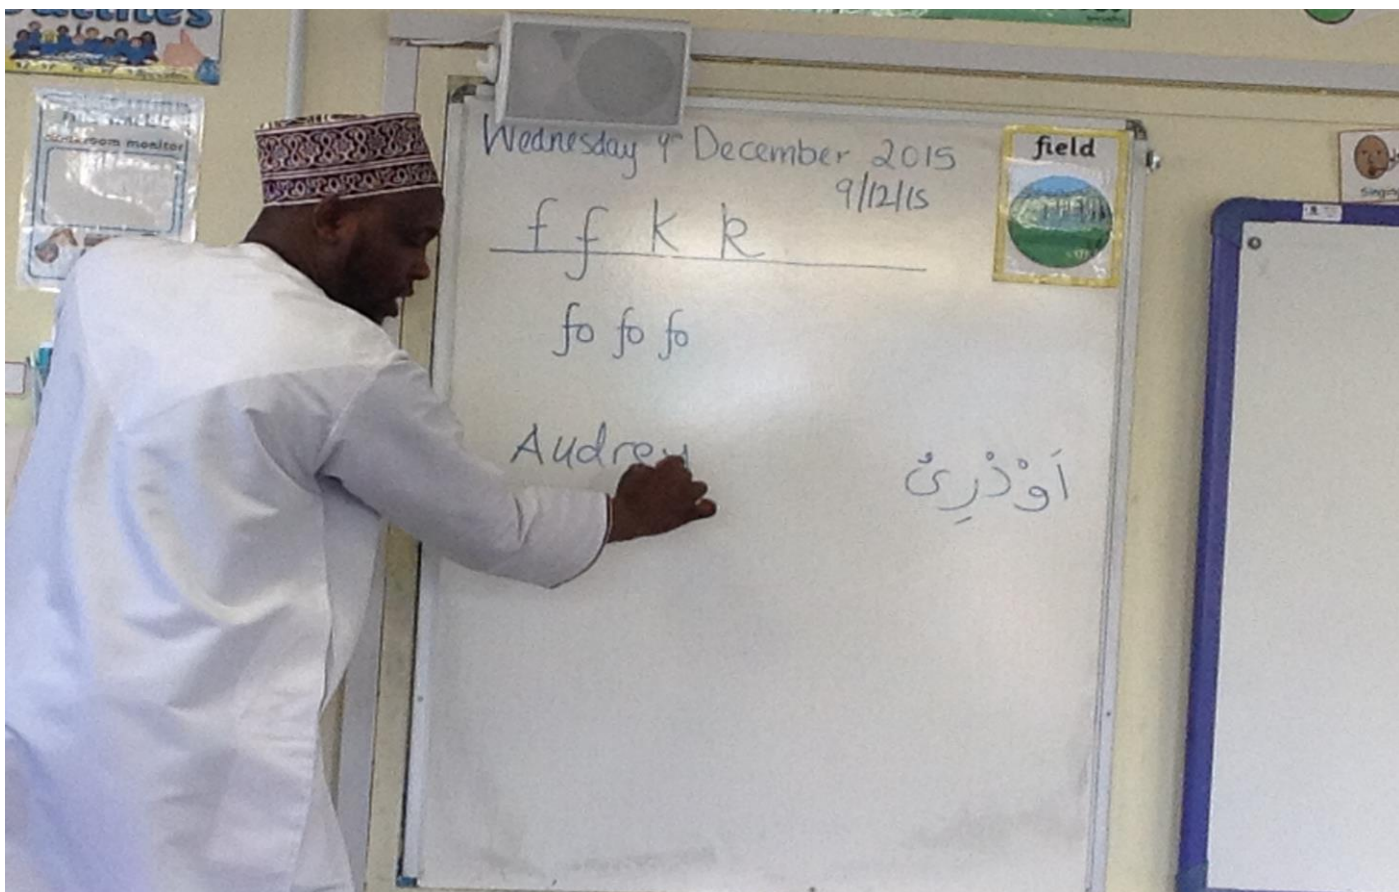 classroom monitor
Wednesday 9th December 2015
9/12/15
field
f f k k
fo fo fo
Audrey
اَوْذْرِىْ
Singing